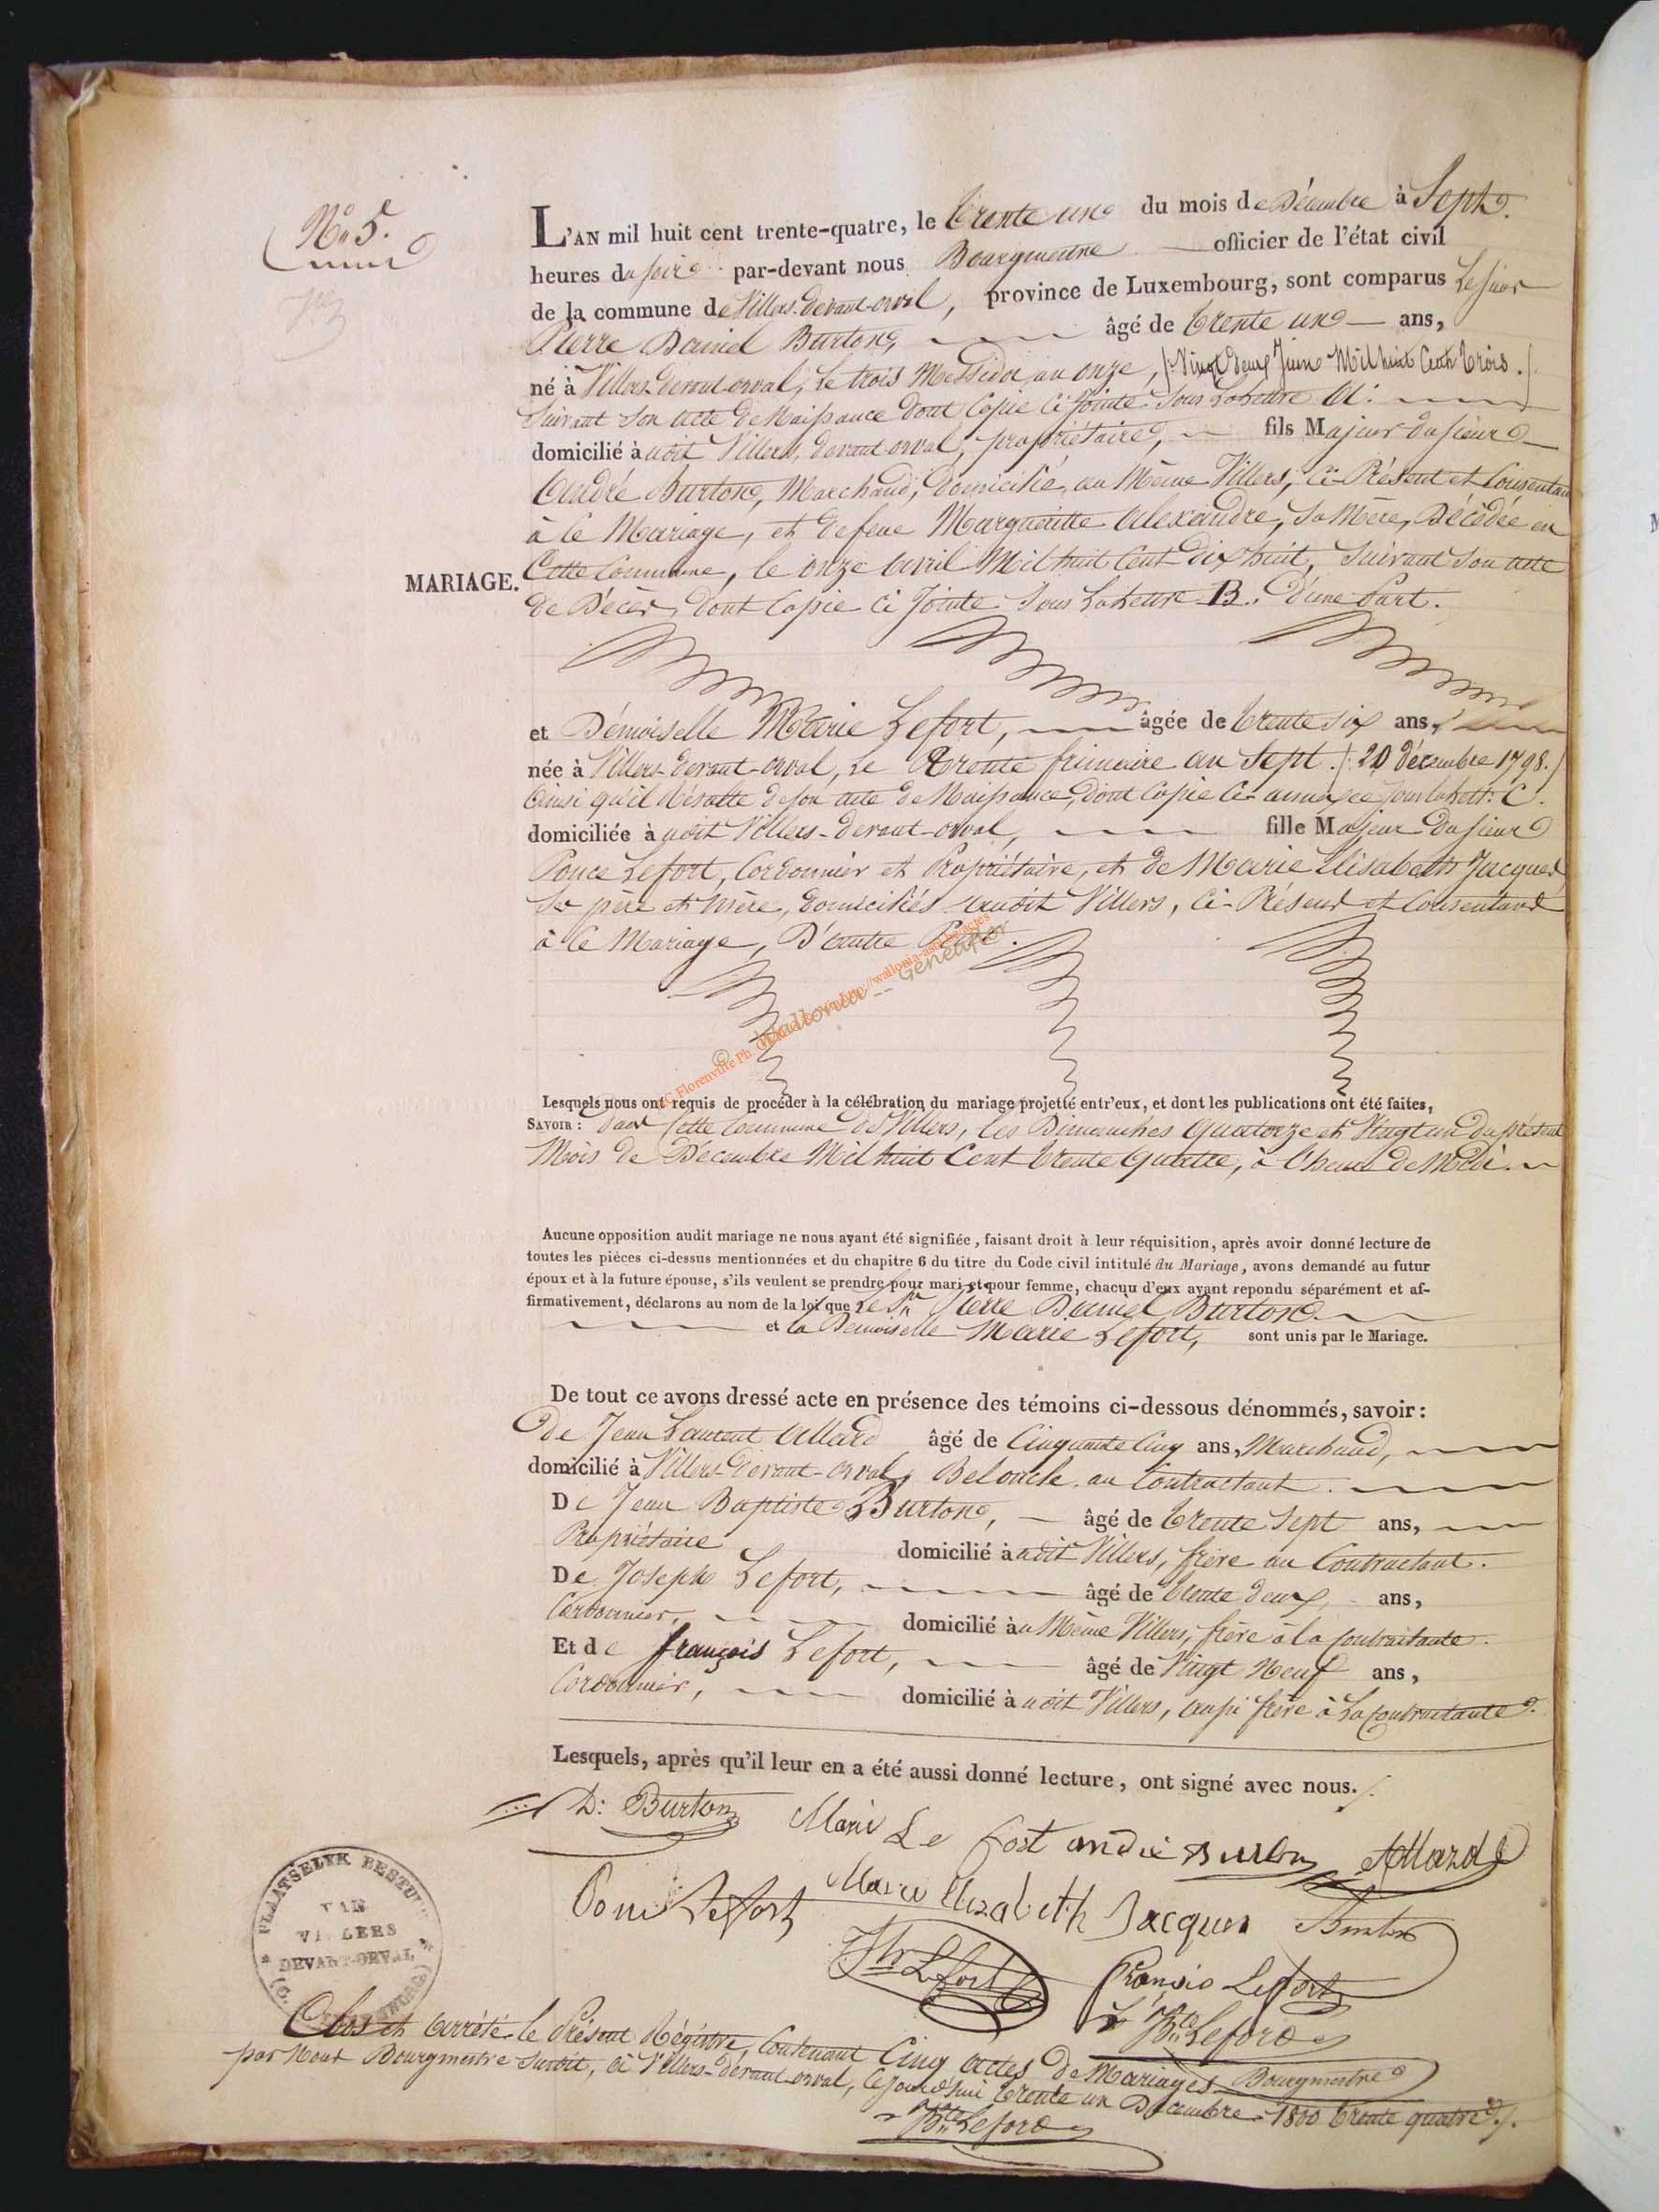 N.° 5.
L'AN mil huit cent trente-quatre, le trente une du mois de Décembre à Sept
heures du soir par-devant nous Bourgmestre officier de l'état civil
de la commune de Villers-devant-orval, province de Luxembourg, sont comparus Le sieur
Pierre Daniel Burton, âgé de trente une ans,
né à Villers-devant-orval, le trois Messidor an onze, (Vingt deux Juin Mil huit Cent trois.)
suivant son acte de Naissance dont Copie Ci Jointe sous La Lettre A.
domicilié à udit Villers, devant-orval, propriétaire, fils Majeur du sieur
André Burton, Marchand, domicilié au Même Villers, Ci-Présent et Consentant
à Ce Mariage, et de feue Marguerite Alexandre, sa Mère, Décédée en
MARIAGE. Cette Commune, le onze avril Mil huit Cent dix huit, suivant son acte
de Décès, dont Copie Ci Jointe sous La Lettre B. D'une Part.
et Démoiselle Marie Lefort, âgée de trente six ans,
née à Villers-devant-orval, le trente frimaire an Sept. (20 Décembre 1798.)
Ainsi qu'il Résulte de son acte de Naissance, dont Copie Ci-annexée sous la Lett: C.
domiciliée à udit Villers-devant-orval, fille Majeur du sieur
Ponce Lefort, Cordonnier et Propriétaire, et de Marie Elisabeth Jacques,
Ses père et mère, domiciliés audit Villers, Ci-Présent et Consentant
à Ce Mariage, D'autre Part.
Lesquels nous ont requis de procéder à la célébration du mariage projetté entr'eux, et dont les publications ont été faites,
SAVOIR : Dans Cette Commune de Villers, les Dimanches quatorze et Vingt un du présent
Mois de Décembre Mil huit Cent trente quatre, à l'heure de Midi.
Aucune opposition audit mariage ne nous ayant été signifiée, faisant droit à leur réquisition, après avoir donné lecture de
toutes les pièces ci-dessus mentionnées et du chapitre 6 du titre du Code civil intitulé du Mariage, avons demandé au futur
époux et à la future épouse, s'ils veulent se prendre pour mari et pour femme, chacun d'eux ayant repondu séparément et af-
firmativement, déclarons au nom de la loi que Le Sr Pierre Daniel Burton
et la Demoiselle Marie Lefort, sont unis par le Mariage.
De tout ce avons dressé acte en présence des témoins ci-dessous dénommés, savoir :
De Jean Laurent Allard âgé de Cinquante Cinq ans, Marchand,
domicilié à Villers-devant-orval, Beloncle au Contractant.
De Jean Baptiste Burton, âgé de trente Sept ans,
Propriétaire domicilié à udit Villers, frère au Contractant.
De Joseph Lefort, âgé de trente deux ans,
Cordonnier, domicilié à u Même Villers, frère à la Contractante.
Et de françois Lefort, âgé de Vingt Neuf ans,
Cordonnier, domicilié à udit Villers, aussi frère à La Contractante.
Lesquels, après qu'il leur en a été aussi donné lecture, ont signé avec nous.
D: Burton Marie Le fort andré Burton Allard
Lefort Marie Elizabeth Jacques Burton
Lefort François Lefort
Lefort
Bourgmestre
PLAATSELYK BESTUUR
VAN
VILLERS
DEVANT-ORVAL
Clos et Arrêté le Présent Régistre, Contenant Cinq Actes de Mariages
par Nous Bourgmestre Susdit, à Villers-devant-orval, Cejourd'hui trente un Décembre 1800 trente quatre.
Lefort
© Wallonia -- Geneaflor